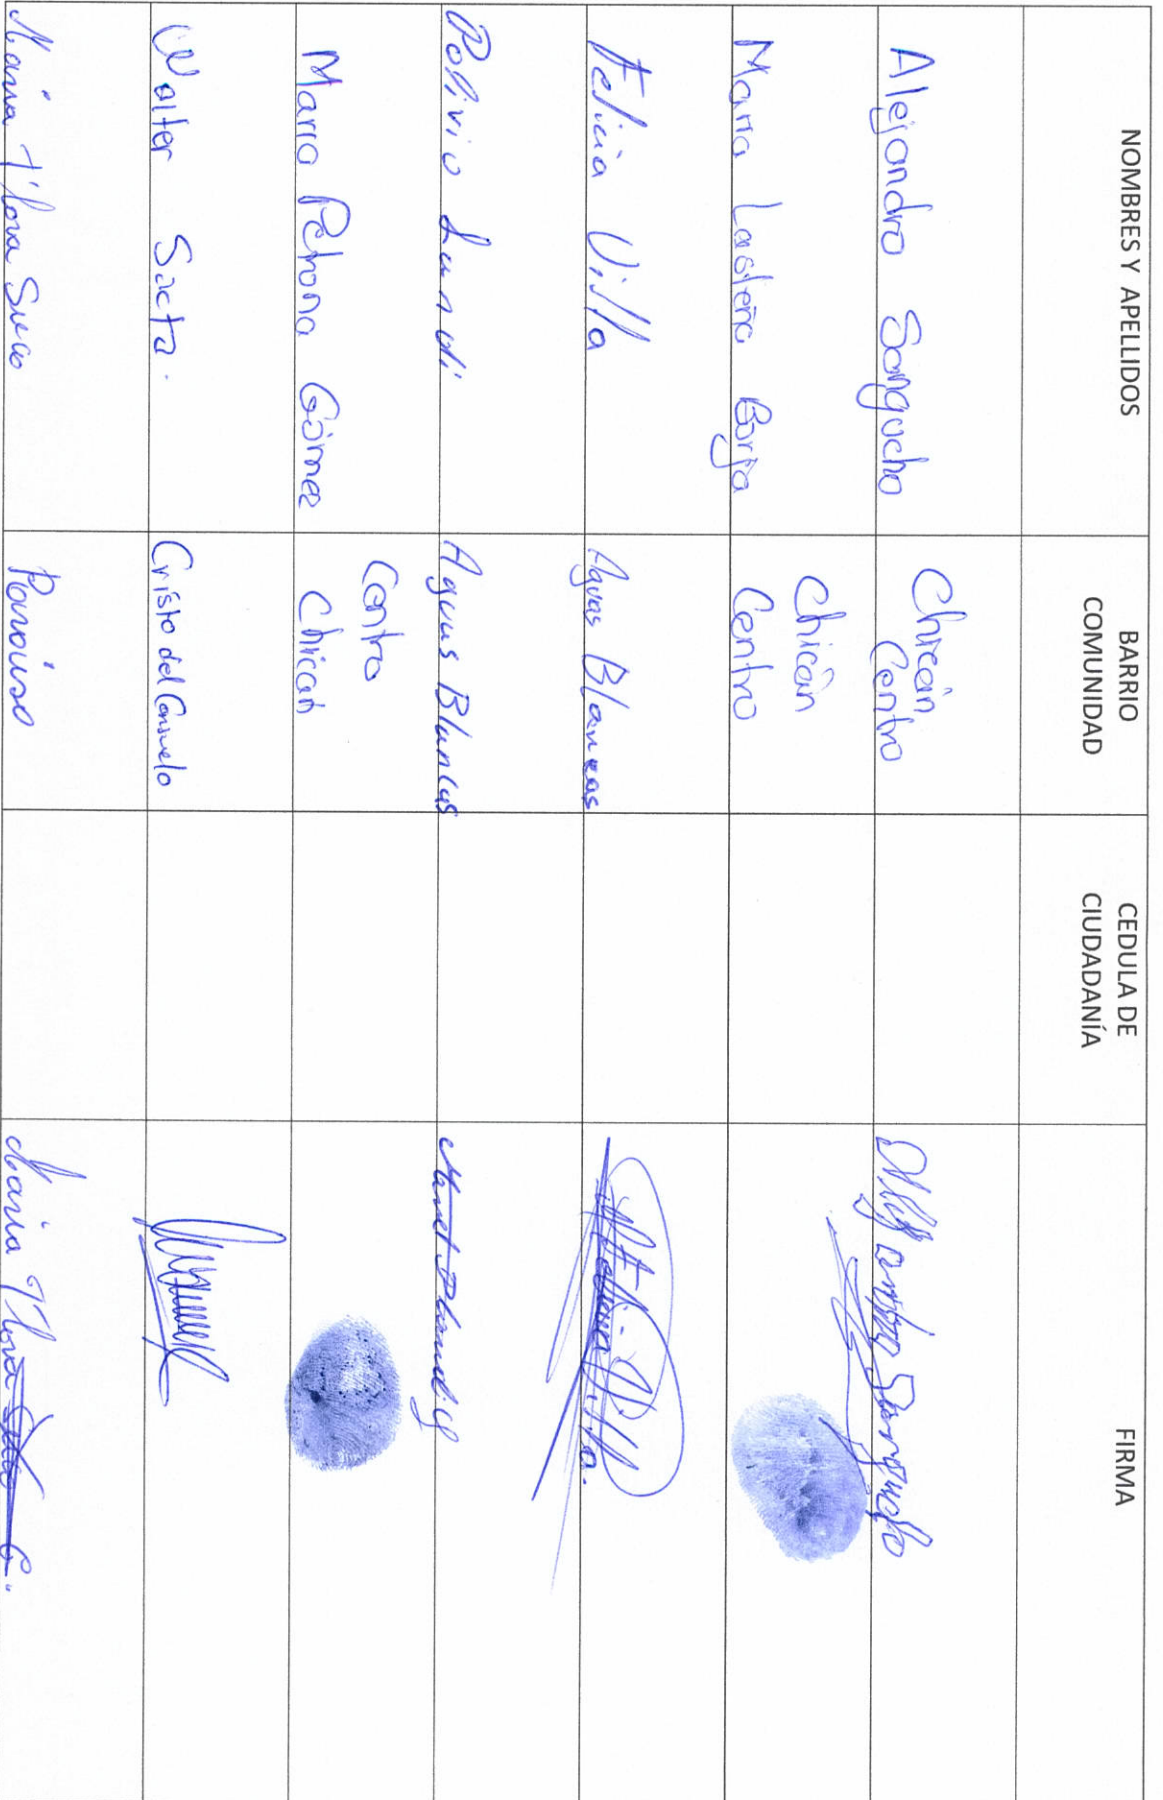 NOMBRES Y APELLIDOS
BARRIO
COMUNIDAD
CEDULA DE
CIUDADANÍA
FIRMA
Alejandro Sangucho
Chicán
Centro
Maria Lastena Borja
Chicán
Centro
Felicia Villa
Aguas Blancas
Felicia Villa.
Polivio Lundi
Aguas Blancas
Maria Petrona Gómez
Centro
Chicán
Walter Sacta.
Cristo del Consuelo
Maria Flora Sucio
Paraiso
Maria Flora